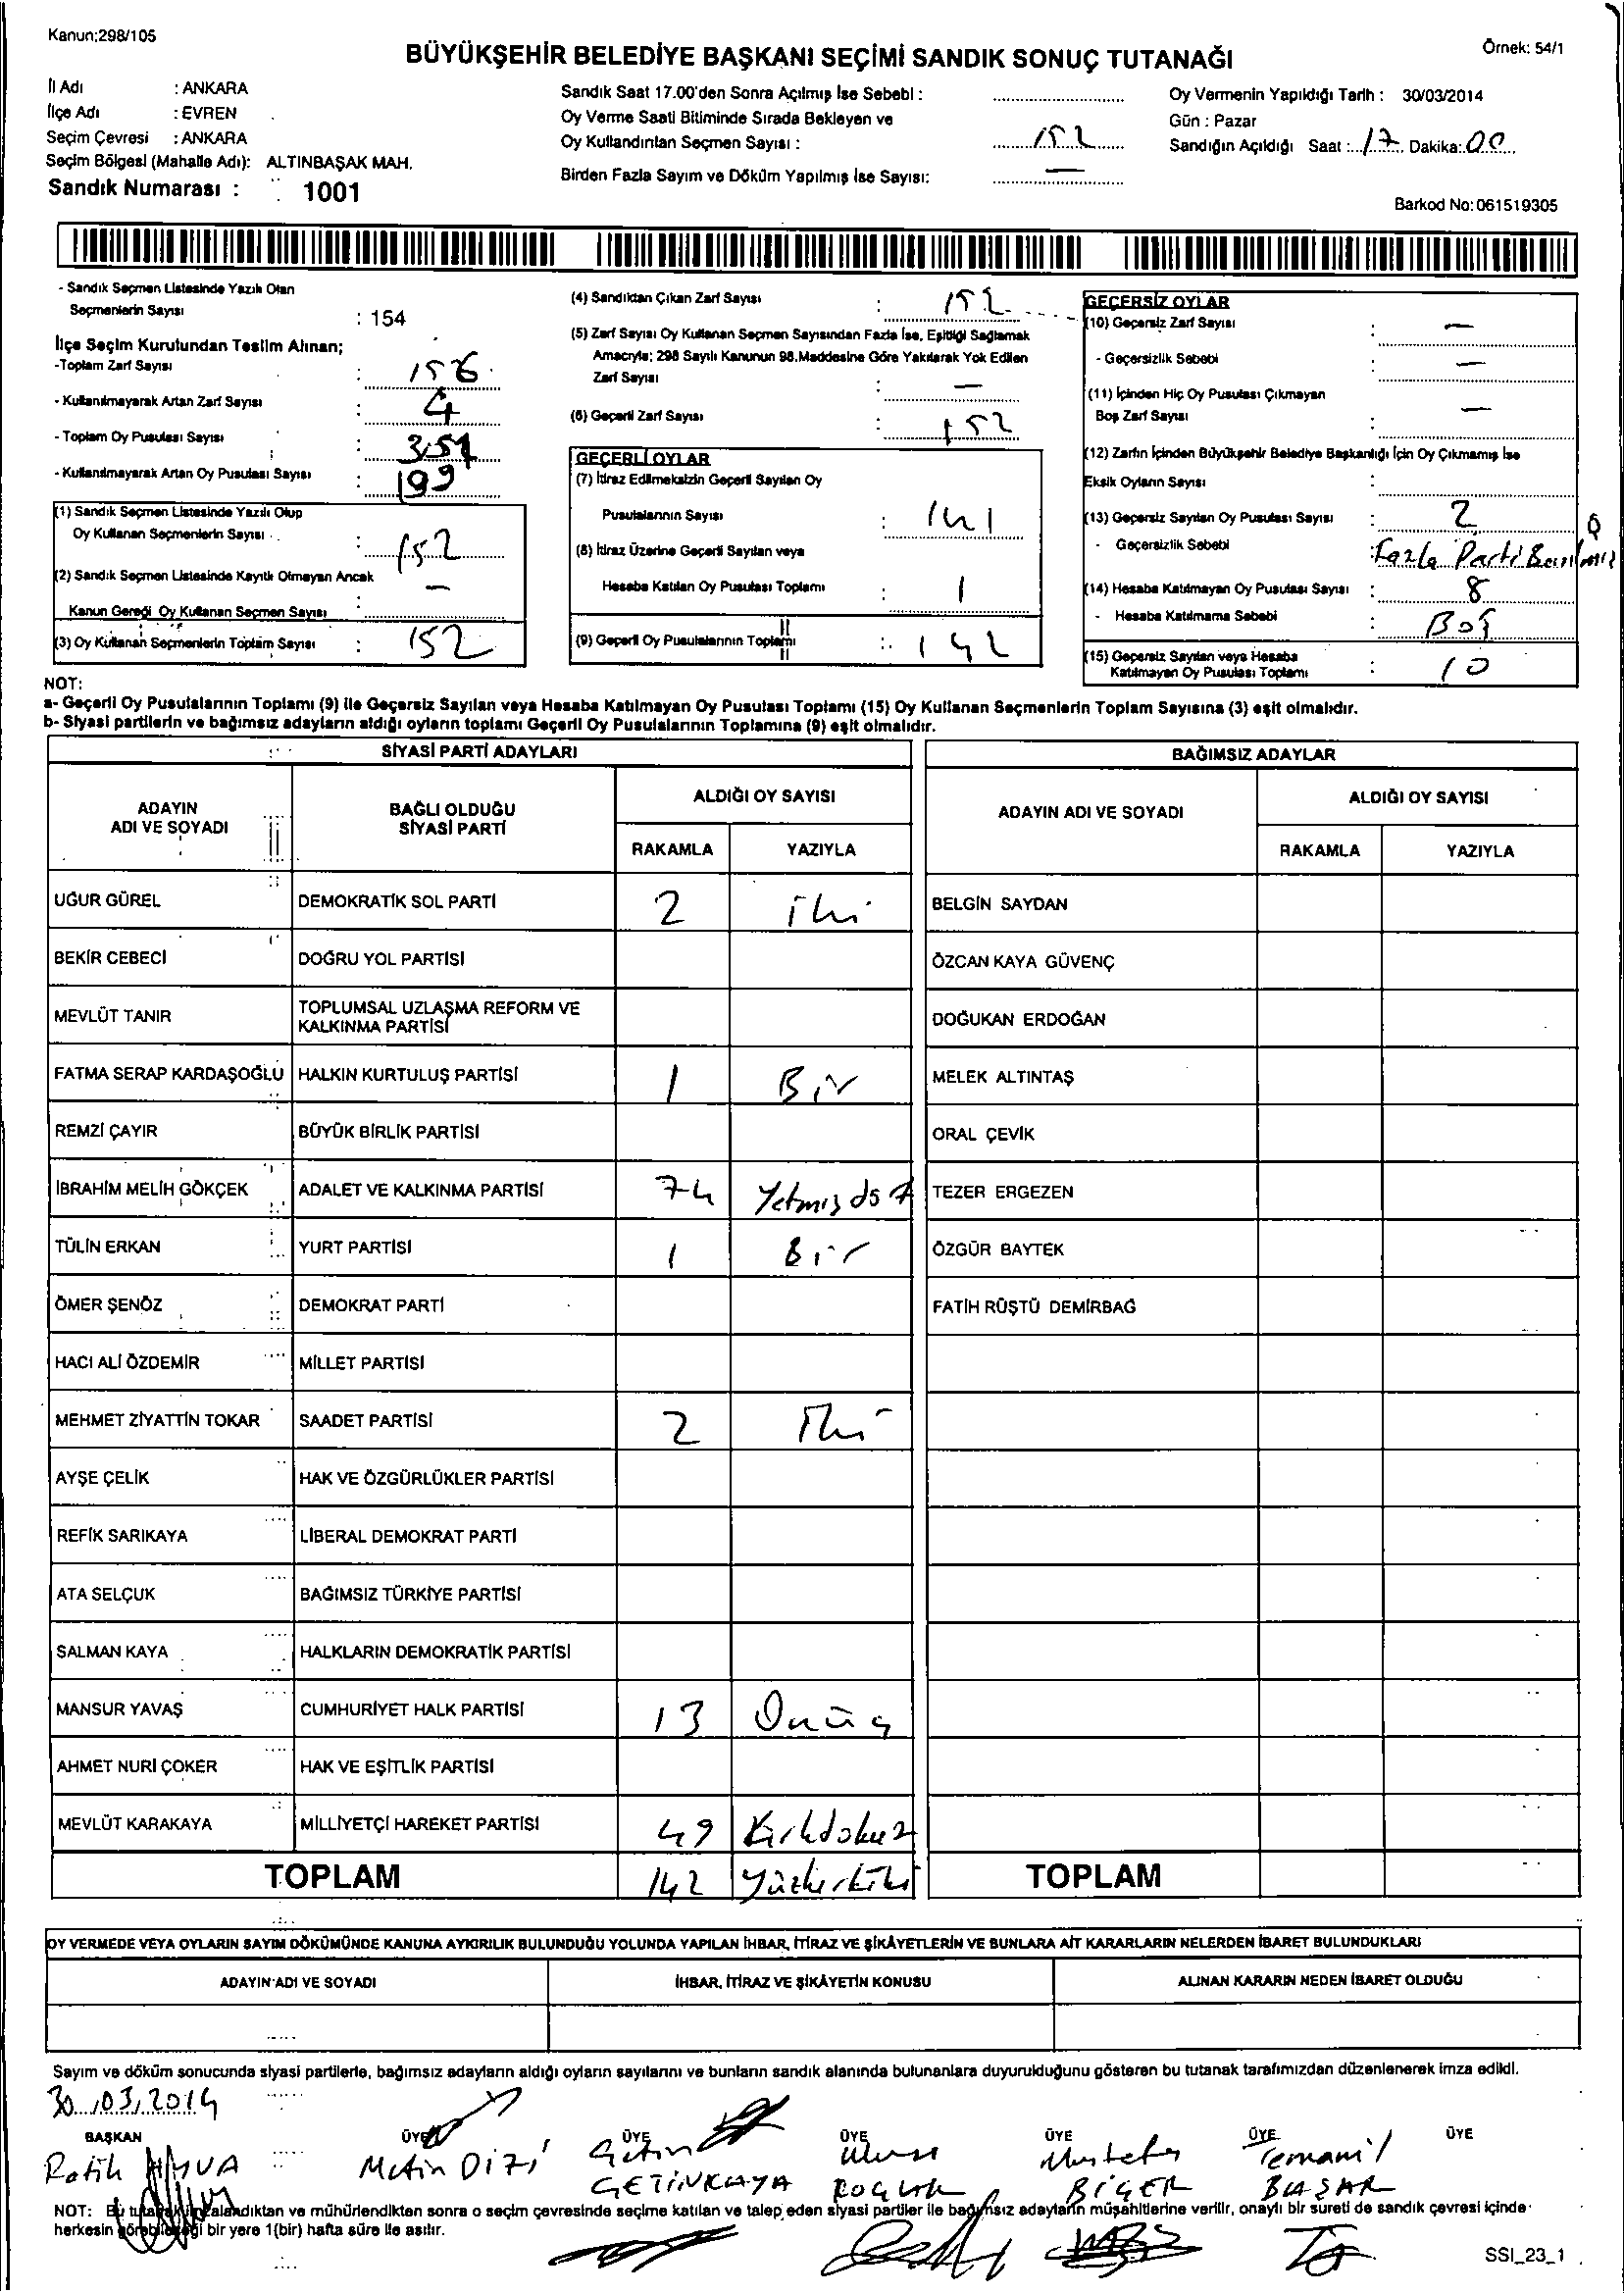 Kanun:298/105
Örnek: 54/1
BÜYÜKŞEHİR BELEDİYE BAŞKANI SEÇİMİ SANDIK SONUÇ TUTANAĞI
İl Adı : ANKARA
İlçe Adı : EVREN
Seçim Çevresi : ANKARA
Seçim Bölgesi (Mahalle Adı): ALTINBAŞAK MAH.
Sandık Numarası : 1001
Sandık Saat 17.00'den Sonra Açılmış İse Sebebi :
Oy Verme Saati Bitiminde Sırada Bekleyen ve
Oy Kullandırılan Seçmen Sayısı : 152
Birden Fazla Sayım ve Döküm Yapılmış İse Sayısı: —
Oy Vermenin Yapıldığı Tarih : 30/03/2014
Gün : Pazar
Sandığın Açıldığı Saat : 17 Dakika: 00
Barkod No: 061519305
- Sandık Seçmen Listesinde Yazılı Olan
Seçmenlerin Sayısı : 154
İlçe Seçim Kurulundan Teslim Alınan;
-Toplam Zarf Sayısı : 156
- Kullanılmayarak Artan Zarf Sayısı : 4
- Toplam Oy Pusulası Sayısı : 351
- Kullanılmayarak Artan Oy Pusulası Sayısı : 199
(1) Sandık Seçmen Listesinde Yazılı Olup
Oy Kullanan Seçmenlerin Sayısı : 152
(2) Sandık Seçmen Listesinde Kayıtlı Olmayan Ancak
Kanun Gereği Oy Kullanan Seçmen Sayısı : —
(3) Oy Kullanan Seçmenlerin Toplam Sayısı : 152
(4) Sandıktan Çıkan Zarf Sayısı : 152
(5) Zarf Sayısı Oy Kullanan Seçmen Sayısından Fazla İse, Eşitliği Sağlamak
Amacıyla; 298 Sayılı Kanunun 98.Maddesine Göre Yakılarak Yok Edilen
Zarf Sayısı : —
(6) Geçerli Zarf Sayısı : 152
GEÇERLİ OYLAR
(7) İtiraz Edilmeksizin Geçerli Sayılan Oy
Pusulalarının Sayısı : 141
(8) İtiraz Üzerine Geçerli Sayılan veya
Hesaba Katılan Oy Pusulası Toplamı : 1
(9) Geçerli Oy Pusulalarının Toplamı : 142
GEÇERSİZ OYLAR
(10) Geçersiz Zarf Sayısı : —
- Geçersizlik Sebebi : —
(11) İçinden Hiç Oy Pusulası Çıkmayan
Boş Zarf Sayısı : —
(12) Zarfın İçinden Büyükşehir Belediye Başkanlığı İçin Oy Çıkmamış İse
Eksik Oyların Sayısı :
(13) Geçersiz Sayılan Oy Pusulası Sayısı : 2
- Geçersizlik Sebebi : Fazla Parti Basılmış
(14) Hesaba Katılmayan Oy Pusulası Sayısı : 8
- Hesaba Katılmama Sebebi : Boş
(15) Geçersiz Sayılan veya Hesaba
Katılmayan Oy Pusulası Toplamı : 10
NOT:
a- Geçerli Oy Pusulalarının Toplamı (9) ile Geçersiz Sayılan veya Hesaba Katılmayan Oy Pusulası Toplamı (15) Oy Kullanan Seçmenlerin Toplam Sayısına (3) eşit olmalıdır.
b- Siyasi partilerin ve bağımsız adayların aldığı oyların toplamı Geçerli Oy Pusulalarının Toplamına (9) eşit olmalıdır.
SİYASİ PARTİ ADAYLARI
ADAYIN ADI VE SOYADI BAĞLI OLDUĞU SİYASİ PARTİ ALDIĞI OY SAYISI
RAKAMLA YAZIYLA
UĞUR GÜREL DEMOKRATİK SOL PARTİ 2 iki
BEKİR CEBECİ DOĞRU YOL PARTİSİ
MEVLÜT TANIR TOPLUMSAL UZLAŞMA REFORM VE KALKINMA PARTİSİ
FATMA SERAP KARDAŞOĞLU HALKIN KURTULUŞ PARTİSİ 1 Bir
REMZİ ÇAYIR BÜYÜK BİRLİK PARTİSİ
İBRAHİM MELİH GÖKÇEK ADALET VE KALKINMA PARTİSİ 74 Yetmiş dört
TÜLİN ERKAN YURT PARTİSİ 1 Bir
ÖMER ŞENÖZ DEMOKRAT PARTİ
HACI ALİ ÖZDEMİR MİLLET PARTİSİ
MEHMET ZİYATTİN TOKAR SAADET PARTİSİ 2 İki
AYŞE ÇELİK HAK VE ÖZGÜRLÜKLER PARTİSİ
REFİK SARIKAYA LİBERAL DEMOKRAT PARTİ
ATA SELÇUK BAĞIMSIZ TÜRKİYE PARTİSİ
SALMAN KAYA HALKLARIN DEMOKRATİK PARTİSİ
MANSUR YAVAŞ CUMHURİYET HALK PARTİSİ 13 Onüç
AHMET NURİ ÇOKER HAK VE EŞİTLİK PARTİSİ
MEVLÜT KARAKAYA MİLLİYETÇİ HAREKET PARTİSİ 49 Kırkdokuz
TOPLAM 142 Yüzkırkiki
BAĞIMSIZ ADAYLAR
ADAYIN ADI VE SOYADI ALDIĞI OY SAYISI
RAKAMLA YAZIYLA
BELGİN SAYDAN
ÖZCAN KAYA GÜVENÇ
DOĞUKAN ERDOĞAN
MELEK ALTINTAŞ
ORAL ÇEVİK
TEZER ERGEZEN
ÖZGÜR BAYTEK
FATİH RÜŞTÜ DEMİRBAĞ
TOPLAM
OY VERMEDE VEYA OYLARIN SAYIM DÖKÜMÜNDE KANUNA AYKIRILIK BULUNDUĞU YOLUNDA YAPILAN İHBAR, İTİRAZ VE ŞİKÂYETLERİN VE BUNLARA AİT KARARLARIN NELERDEN İBARET BULUNDUKLARI
ADAYIN ADI VE SOYADI İHBAR, İTİRAZ VE ŞİKÂYETİN KONUSU ALINAN KARARIN NEDEN İBARET OLDUĞU
Sayım ve döküm sonucunda siyasi partilerle, bağımsız adayların aldığı oyların sayılarını ve bunların sandık alanında bulunanlara duyurulduğunu gösteren bu tutanak tarafımızdan düzenlenerek imza edildi.
30/03/2014
BAŞKAN ÜYE ÜYE ÜYE ÜYE ÜYE ÜYE
Metin DİZİ Çetin Mustafa
ÇETİNKAYA BİÇER BAŞAR
NOT: Bu tutanak imzalandıktan ve mühürlendikten sonra o seçim çevresinde seçime katılan ve talep eden siyasi partiler ile bağımsız adayların müşahitlerine verilir, onaylı bir sureti de sandık çevresi içinde
herkesin görebileceği bir yere 1(bir) hafta süre ile asılır.
SSI_23_1